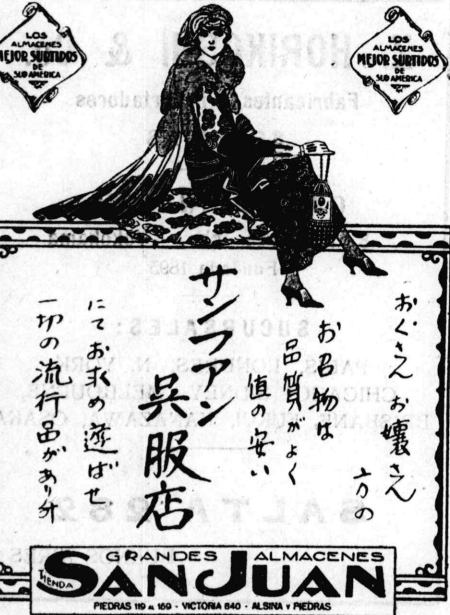 LOS
ALMACENES
MEJOR SURTIDOS
DE
SUD AMÉRICA
LOS
ALMACENES
MEJOR SURTIDOS
DE
SUD AMÉRICA
おくさんお嬢さん
方の
お召物は
品質がよく
値の安い
サンフアン
呉服店
にてお求 遊ばせ
一切の流行品があり升
GRANDES ALMACENES
TIENDA
SAN JUAN
PIEDRAS 119 AL 169 - VICTORIA 840 - ALSINA Y PIEDRAS